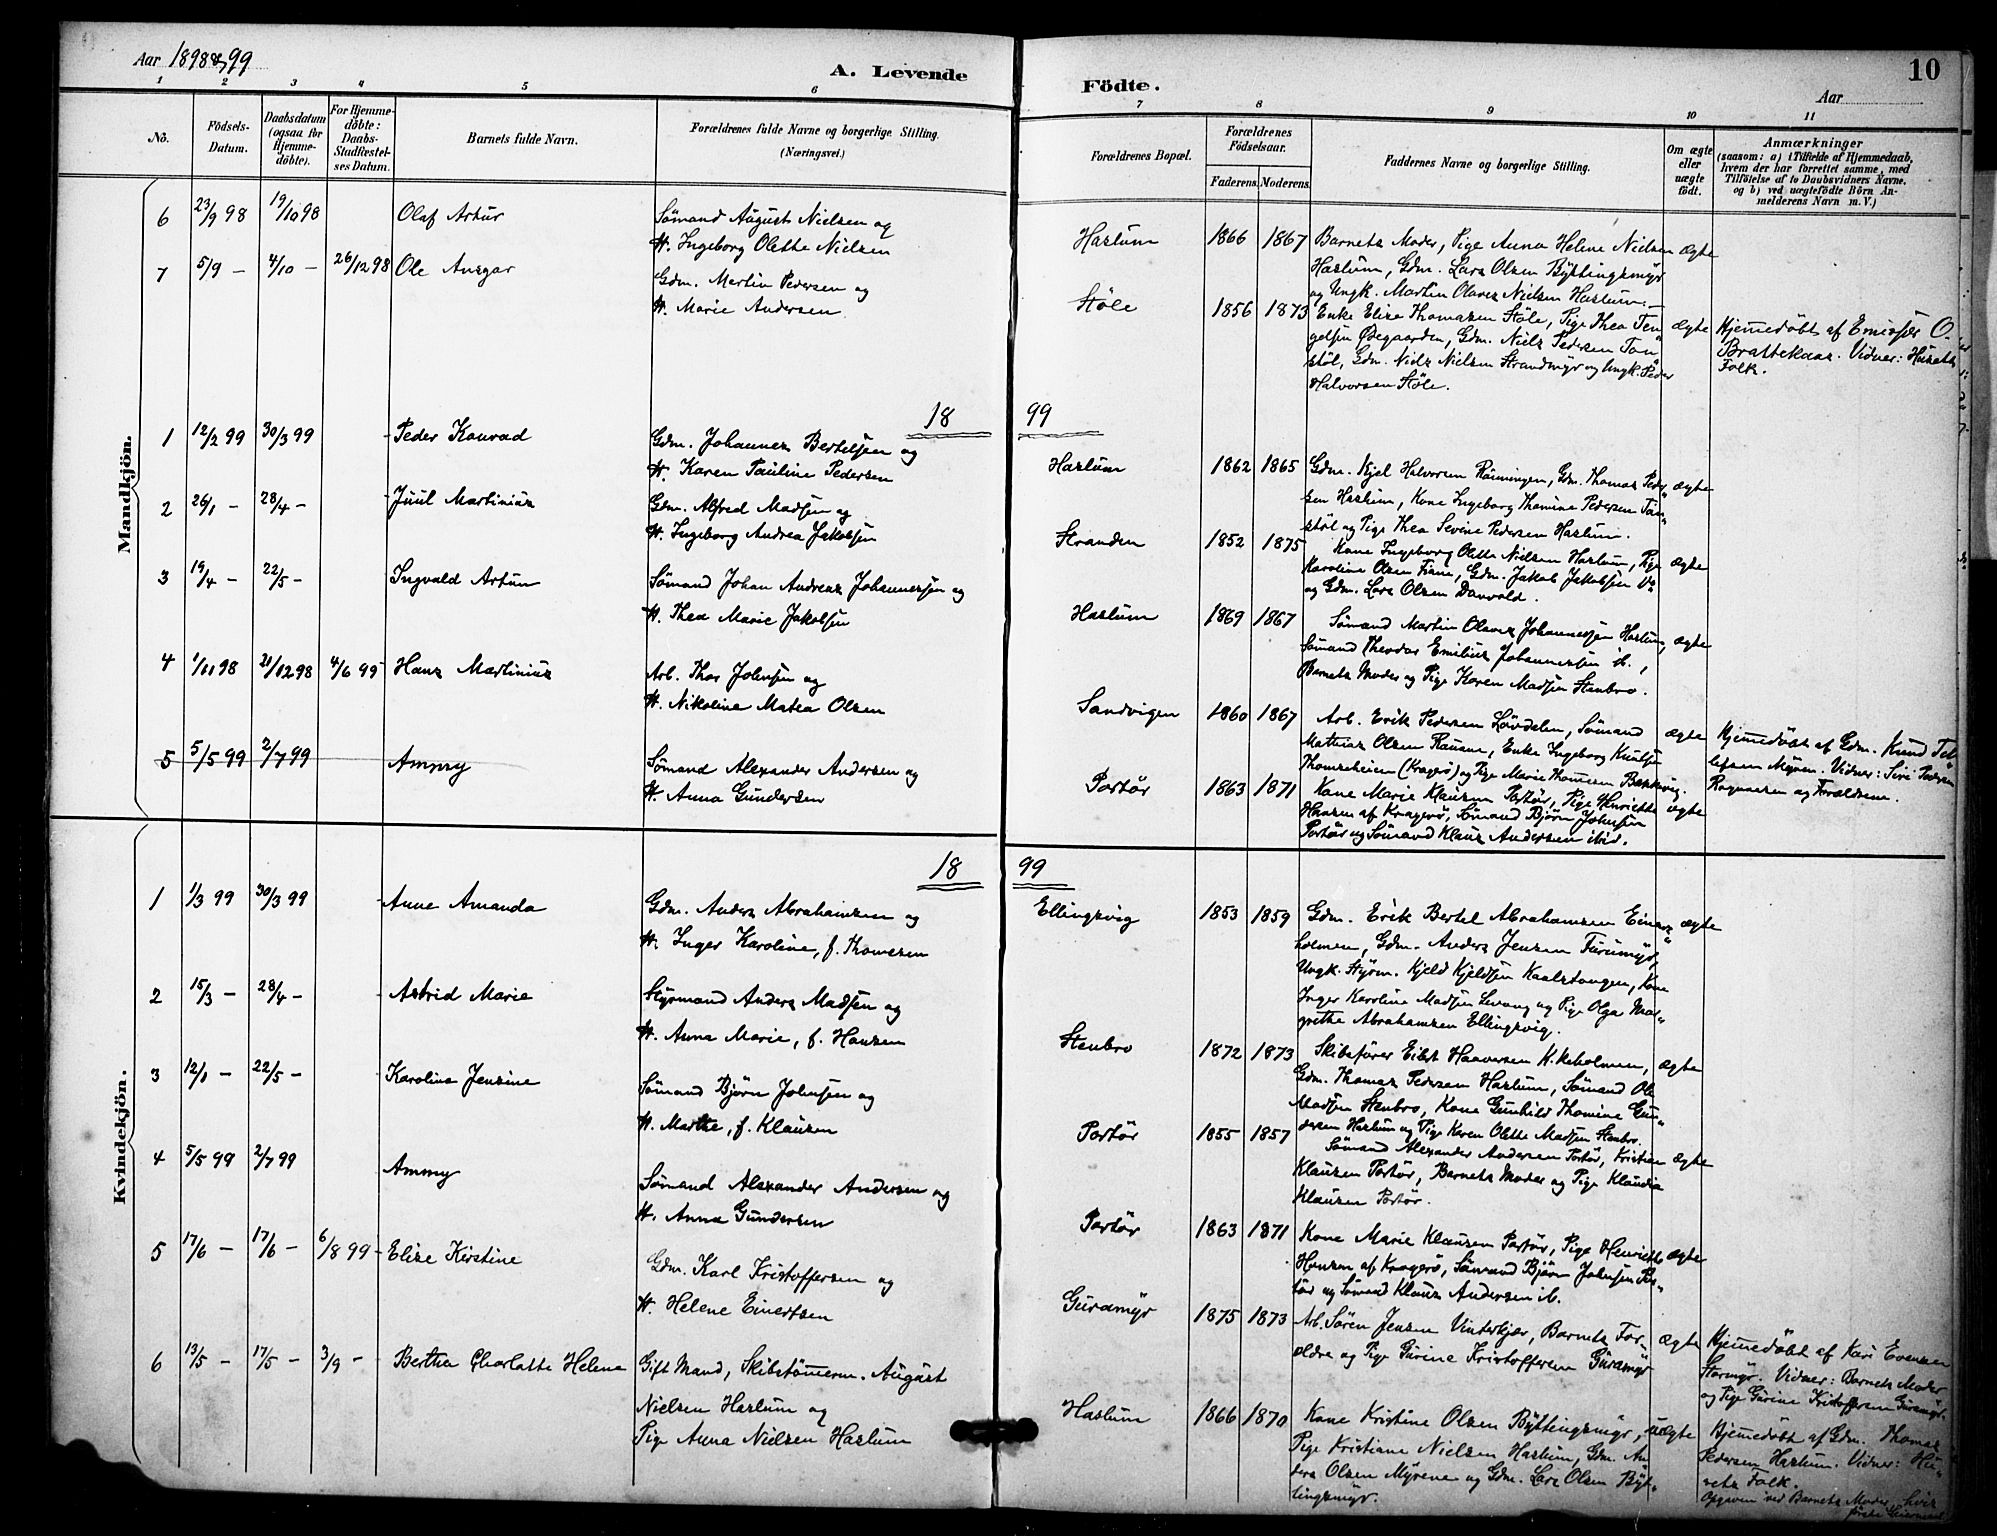 Aar 1898 & 99
A. Levende
Födte.
10
Aar
1 2 3 4 5 6
7 8 9 10 11
No.
Födsels-Datum.
Daabsdatum (ogsaa for Hjemmedöbte).
For Hjemmedöbte: Daabs-Stadfæstelses Datum.
Barnets fulde Navn.
Forældrenes fulde Navne og borgerlige Stilling.
(Næringsvei.)
Forældrenes Bopæl.
Forældrenes Födselsaar.
Faderens. Moderens.
Faddernes Navne og borgerlige Stilling.
Om ægte eller uægte födt.
Anmærkninger
(saasom: a) i Tilfælde af Hjemmedaab,
hvem der har forrettet samme, med
Tilföielse af to Daabsvidners Navne,
og b) ved uægtefödte Börn Anmelderens Navn m. V.)
Mandkjön.
6 23/9 98 19/10 98 Olaf Artur Sømand August Nielsen og
H. Ingeborg Olette Nielsen
Haslum 1866 1867 Barnets Moder, Pige Anna Helene Nielsen ægte
Haslum, Gdm. Lars Olsen Byttingsmyr
og Ungk. Martin Olaves Nielsen Haslum.
7 5/9 – 4/10 – 26/12 98 Ole Ansgar Gdm. Martin Pedersen og
H. Marie Andersen
Støle 1856 1873 Enke Elise Thomasen Støle, Pige Thea Ten- ægte Hjemmedøbt af Emissær O.
gelsen Øsegaarden, Gdm. Niels Pedersen Tan- Brattekaas. Vidner: Husets
støl, Gdm. Niels Nielsen Strandmyr og Ungk. Peder Folk.
Halvorsen Støle.
18 99
1 12/2 99 30/3 99 Peder Konrad Gdm. Johannes Bertelsen og
H. Karen Pauline Pedersen
Haslum 1862 1865 Gdm. Kjel Halvorsen Rønningen, Gdm. Thomas Peder- ægte
sen Haslum, Kone Ingeborg Thomine Pedersen Tan-
støl og Pige Thea Sevine Pedersen Haslum.
2 26/1 – 28/4 – Juul Martinius Gdm. Alfred Madsen og
H. Ingeborg Andrea Jakobsen
Stranden 1852 1875 Kone Ingeborg Olette Nielsen Haslum, Pige ægte
Karoline Olsen Fiane, Gdm. Jakob Jakobsen
og Gdm. Lars Olsen Danvold.
3 19/4 – 22/5 – Ingvald Artun Sømand Johan Andreas Johannessen og
H. Thea Marie Jakobsen
Haslum 1869 1867 Sømand Martin Olaves Johannessen Haslum, ægte
Sømand Theodor Emilius Johannessen ib.,
Barnets Moder og Pige Karen Madsen Stenbro.
4 1/11 98 21/12 98 4/6 99 Hans Martinius Arb. Thor Johnsen og
H. Nikoline Matea Olsen
Sandvigen 1860 1867 Arb. Erik Pedersen Løvdalen, Sømand ægte Hjemmedøbt af Gdm. Knud Tel-
Mathias Olsen Rausan, Enke Ingeborg Knutsen lefsen Myren. Vidner: Siri Pedersen
Thomesheien (Kragerø) og Pige Marie Thomesen Bakkevig. og Forældrene.
5 5/5 99 2/7 99 Ammy Sømand Alexander Andersen og
H. Anna Gundersen
Portør 1863 1871 Kone Marie Klausen Portør, Pige Henriette ægte
Hansen af Kragerø, Sømand Bjørn Johnsen
Portør og Sømand Klaus Andersen ibid.
Kvindekjön.
18 99
1 1/3 99 30/3 99 Anne Amanda Gdm. Anders Abrahamsen og
H. Inger Karoline, f. Thomesen
Ellingsvig 1853 1859 Gdm. Erik Bertel Abrahamsen Einars- ægte
holmen, Gdm. Anders Jensen Furumyr,
Ungk. Styrm. Kjeld Kjeldsen Kaalstangen, Kone
Inger Karoline Madsen Levang og Pige Olga Mar-
grethe Abrahamsen Ellingsvig.
2 15/3 – 28/4 – Astrid Marie Styrmand Anders Madsen og
H. Anna Marie, f. Hansen
Stenbro 1872 1873 Skibsfører Eilert Haaversen Kikeholmen, ægte
Gdm. Thomas Pedersen Haslum, Sømand Ole
Madsen Stenbro, Kone Gunhild Thomine Gun-
dersen Haslum og Pige Karen Olette Madsen Stenbro.
3 12/1 – 22/5 – Karoline Jensine Sømand Bjørn Johnsen og
H. Marthe, f. Klausen
Portør 1855 1857 Sømand Alexander Andersen Portør, Kristian ægte
Klausen Portør, Barnets Moder og Pige Klaudia
Klausen Portør.
4 5/5 99 2/7 99 Ammy Sømand Alexander Andersen og
H. Anna Gundersen
Portør 1863 1871 Kone Marie Klausen Portør, Pige Henriette ægte
Hansen af Kragerø, Sømand Bjørn Johnsen Por-
tør og Sømand Klaus Andersen ib.
5 17/6 – 17/6 – 6/8 99 Elise Kirstine Gdm. Karl Kristoffersen og
H. Helene Einertsen
Guramyr 1875 1873 Arb. Søren Jensen Vinterkjær, Barnets For- ægte Hjemmedøbt af Kari Evensen
ældre og Pige Gurine Kristoffersen Guramyr Stormyr. Vidner: Barnets Moder
og Pige Gurine Kristoffersen Guramyr.
6 13/5 – 17/5 – 3/9 – Berthe Charlotte Helene Gift Mand, Skibstømmerm. August
Nielsen Haslum og
Pige Anna Nielsen Haslum
Haslum 1866 1870 Kone Kristine Olsen Byttingsmyr, uægte Hjemmedøbt af Gdm. Thomas
Pige Kristiane Nielsen Haslum, Gdm. An- Pedersen Haslum. Vidner: Hu-
ders Olsen Myrene og Gdm. Lars Olsen Byt- sets Folk.
tingsmyr. Opgiven ved Barnets Moder, hvis
første Leiermaal